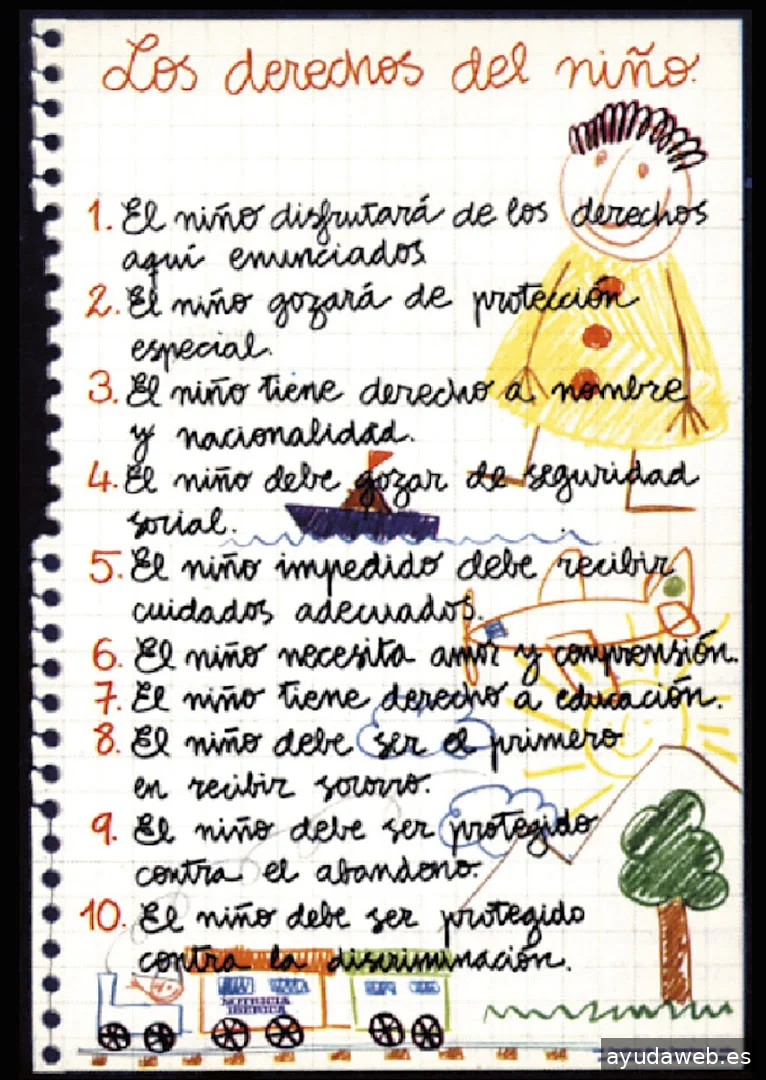 Los derechos del niño.
1. El niño disfrutará de los derechos
aquí enunciados
2. El niño gozará de protección
especial.
3. El niño tiene derecho a nombre
y nacionalidad.
4. El niño debe gozar de seguridad
social.
5. El niño impedido debe recibir
cuidados adecuados.
6. El niño necesita amor y comprensión.
7. El niño tiene derecho a educación.
8. El niño debe ser el primero
en recibir socorro.
9. El niño debe ser protegido
contra el abandono.
10. El niño debe ser protegido
contra la discriminación.
NUTRICIA
IBERICA
ayudaweb.es